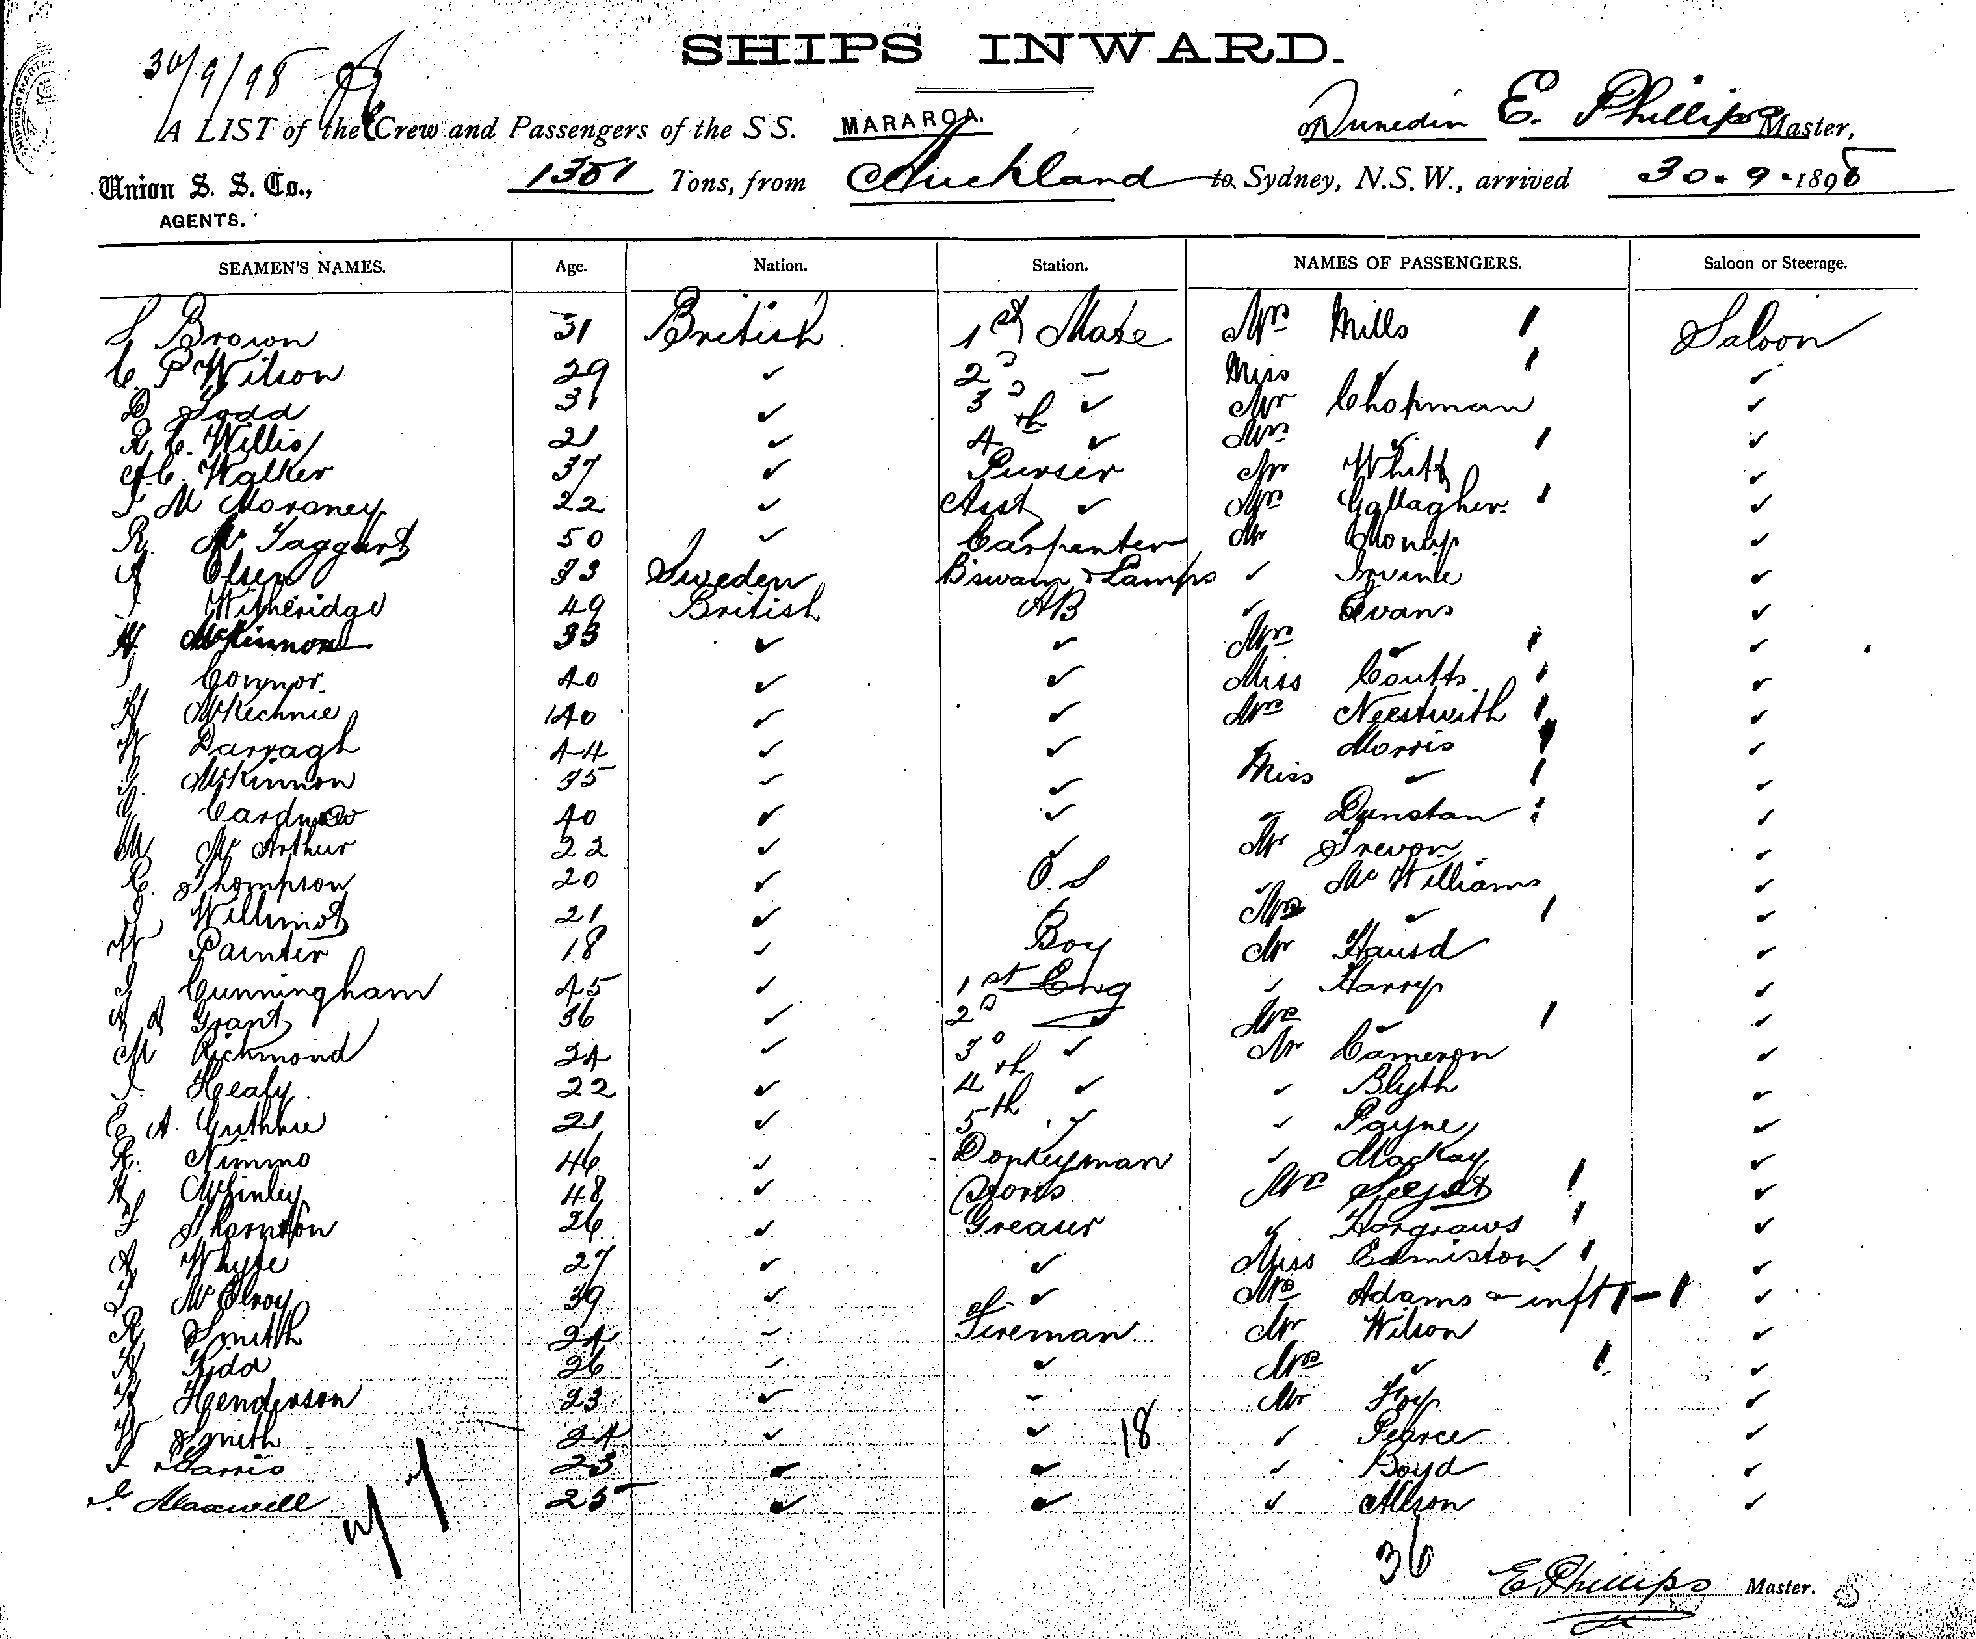 SHIPS INWARD.
30/9/98
A LIST of the Crew and Passengers of the S S. MARAROA. Dunedin E. Phillips Master,
Union S. S. Co., 1381 Tons, from Auckland to Sydney, N.S.W., arrived 30.9.1898
AGENTS.
SEAMEN'S NAMES. Age. Nation. Station. NAMES OF PASSENGERS. Saloon or Steerage.
Brown 31 British 1st Mate Mrs Mills Saloon
C. P Wilson 29 ✓ 2d – Miss ✓ ✓
D Todd 31 ✓ 3d ✓ Mr Chapman ✓
R. C. Willis 21 ✓ 4th ✓ Mrs ✓ ✓
A. C. Walker 37 ✓ Purser Mr ✓
M Moroney 22 ✓ Asst ✓ Mrs Gallagher ✓
R. McTaggart 50 ✓ Carpenter Mr ✓
A Olsen 33 Sweden B'swain & Lamps ✓ Irvine ✓
Witheridge 49 British AB ✓ Evans ✓
McKinnon 33 ✓ ✓ Mrs ✓ ✓
Connor 40 ✓ ✓ Miss Coutts ✓
McKechnie 40 ✓ ✓ Mrs ✓
Darragh 44 ✓ ✓ ✓ Morris ✓
McKinnon 35 ✓ ✓ Miss ✓ ✓
40 ✓ ✓ ✓ Dunstan ✓
McArthur 22 ✓ ✓ Mr Trevor ✓
C. Thompson 20 ✓ O.S ✓ McWilliams ✓
Willmot 21 ✓ Mrs ✓ ✓
Painter 18 ✓ Boy Mr ✓
J Cunningham 45 ✓ 1st Eng ✓ Harry ✓
Grant 36 ✓ 2d ✓ Mrs ✓ ✓
M Richmond 24 ✓ 3d ✓ Mr Cameron ✓
Heafy 22 ✓ 4th ✓ ✓ Blyth ✓
E A. Guthrie 21 ✓ 5th ✓ ✓ Payne ✓
Nimmo 46 ✓ Donkeyman ✓ MacKay ✓
McGinley 48 ✓ Mrs ✓
Thornton 26 ✓ Greaser ✓ Hargraves ✓
Whyte 27 ✓ ✓ Miss Edmiston ✓
McElroy 39 ✓ ✓ Mrs Adams & inft 1 – 1 ✓
R Smith 24 ✓ Fireman Mr Wilson ✓
Kidd 26 ✓ ✓ Mrs ✓ ✓
Henderson 23 ✓ – Mr Foy ✓
W Smith 24 ✓ ✓ 18 ✓ Pearce ✓
Harris 23 ✓ ✓ ✓ Boyd ✓
Maxwell 25 ✓ ✓ ✓ Allson ✓
36
E Phillips Master.